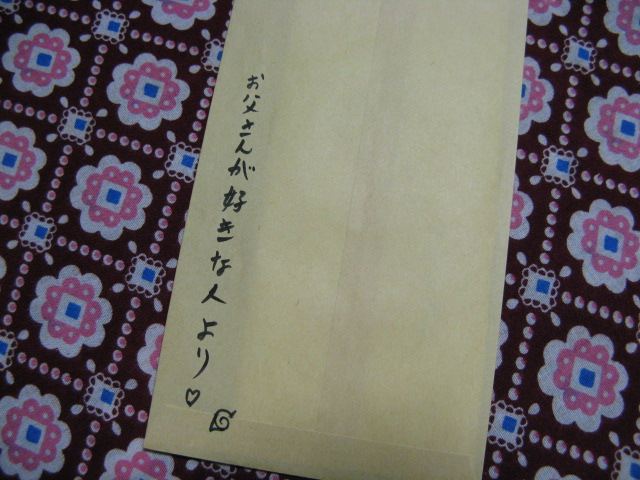 お父さんが好きな人より♡